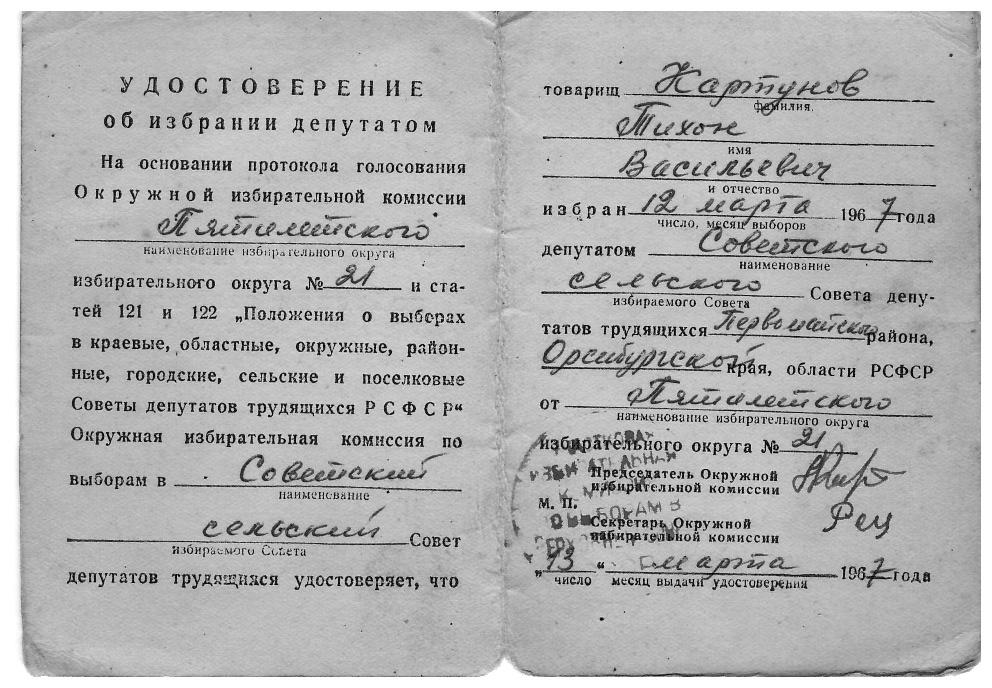 УДОСТОВЕРЕНИЕ
об избрании депутатом
На основании протокола голосования
Окружной избирательной комиссии
Пятилетского
наименование избирательного округа
избирательного округа № 21 и ста-
тей 121 и 122 „Положения о выборах
в краевые, областные, окружные, район-
ные, городские, сельские и поселковые
Советы депутатов трудящихся РСФСР“
Окружная избирательная комиссия по
выборам в Советский
наименование
сельский Совет
избираемого Совета
депутатов трудящихся удостоверяет, что
товарищ Картунов
фамилия,
Тихон
имя
Васильевич
и отчество
избран 12 марта 1967 года
число, месяц выборов
депутатом Советского
наименование
сельского Совета депу-
избираемого Совета
татов трудящихся Первомайского района,
Оренбургской края, области РСФСР
от Пятилетского
наименование избирательного округа
избирательного округа № 21
Председатель Окружной
избирательной комиссии
М. П.
Секретарь Окружной
избирательной комиссии
„13“ марта 1967 года
число месяц выдачи удостоверения